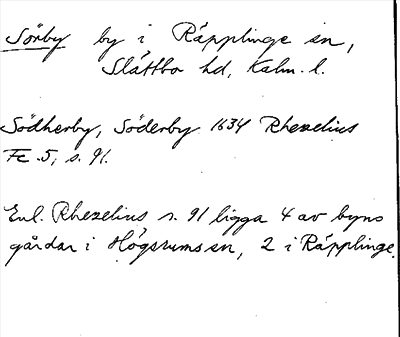 Sörby by i Räpplinge sn,
Slättbo hd, Kalm. l.
Södherby, Söderby 1634 Rhezelius
Fc 5, s. 91.
Enl. Rhezelius s. 91 ligga 4 av byns
gårdar i Högsrums sn, 2 i Räpplinge.